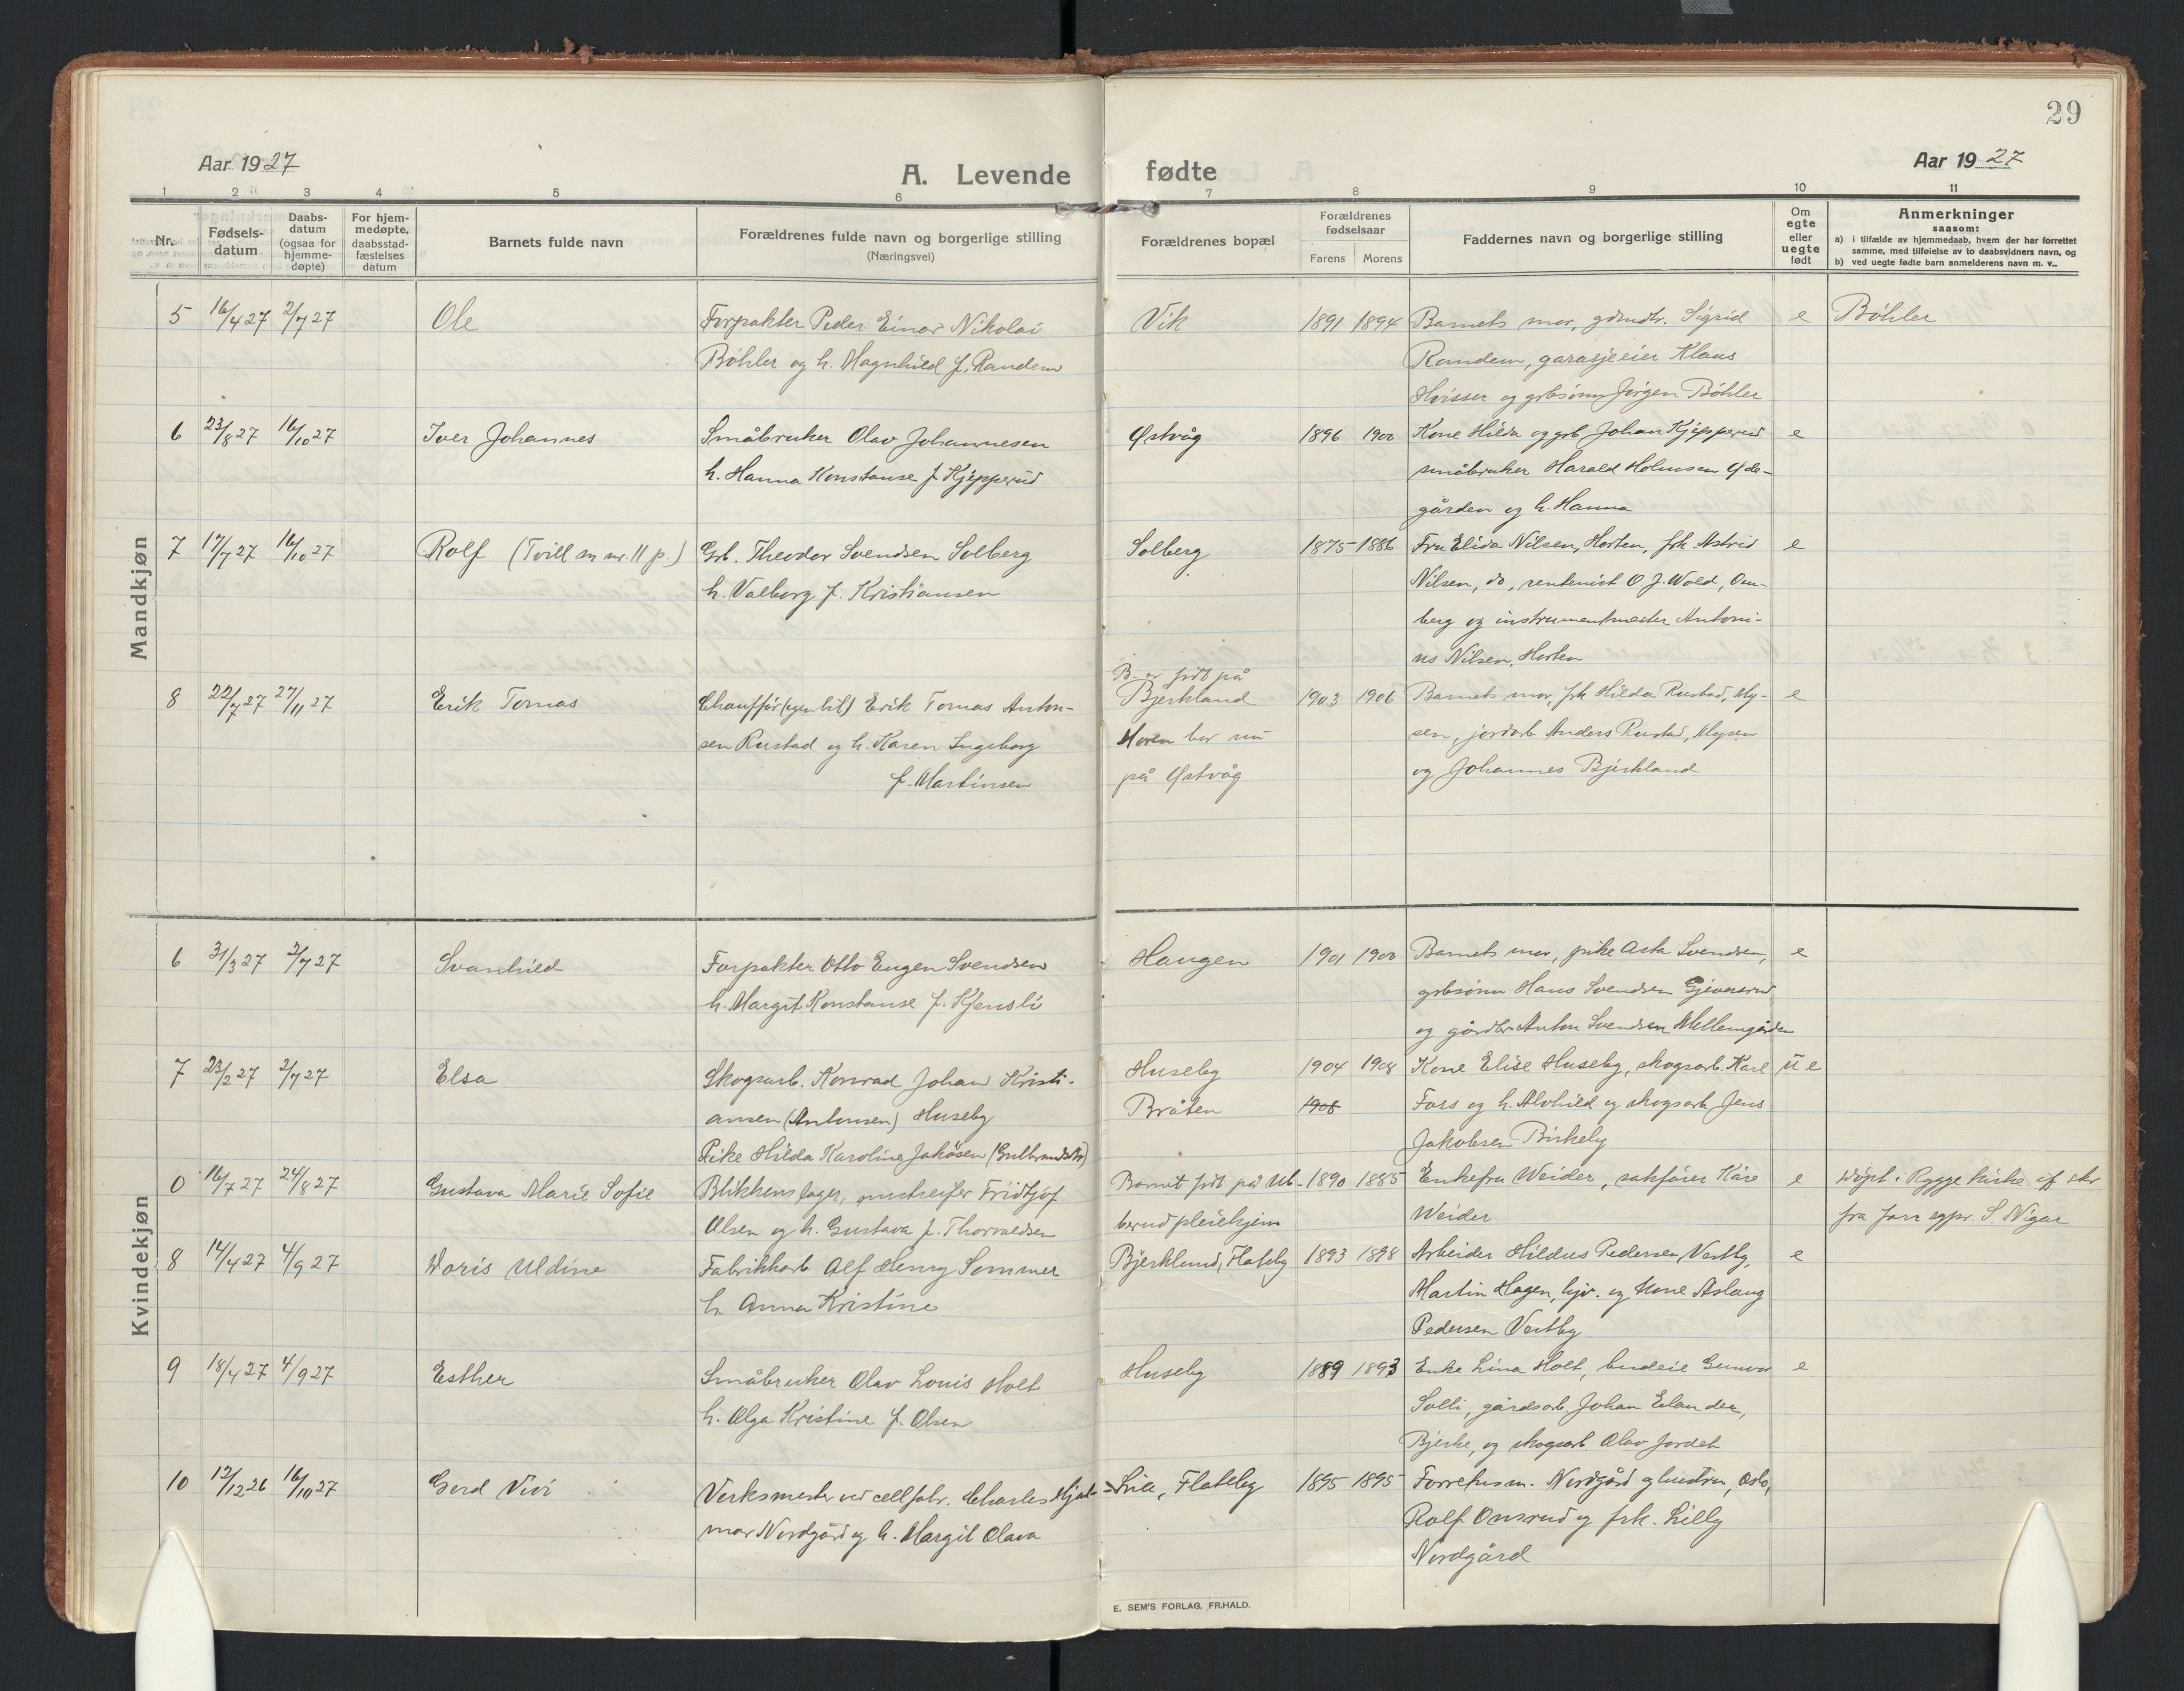 29
Aar 1927
A. Levende fødte
Aar 1927
1 2 3 4 5 6 7 8 9 10 11
Nr.
Fødsels-
datum
Daabs-
datum
(ogsaa for
hjemme-
døpte)
For hjem-
medøpte,
daabsstad-
fæstelses
datum
Barnets fulde navn
Forældrenes fulde navn og borgerlige stilling
(Næringsvei)
Forældrenes bopæl
Forældrenes
fødselsaar
Farens Morens
Faddernes navn og borgerlige stilling
Om
egte
eller
uegte
født
Anmerkninger
saasom:
a) i tilfælde av hjemmedaab, hvem der har forrettet
samme, med tilføielse av to daabsvidners navn, og
b) ved uegte fødte barn anmelderens navn m. v..
Mandkjøn
5 16/4 27 2/7 27 Ole Forpakter Peder Einar Nikolai Vik 1891 1894 Barnets mor, grdmdtr. Sigrid e Böhler
Böhler og h. Magnhild f. Randem Randem, garasjeeier Klaus
og grbsønn Jørgen Böhler
6 23/8 27 16/10 27 Iver Johannes Småbruker Olav Johannesen Østvåg 1896 1900 Kone Hilda og grb. Johan Kjepperud e
h. Hanna Konstanse f. Kjepperud småbruker Harald Holmsen Øde-
gården og h. Hanna
7 17/7 27 16/10 27 Rolf (Tvill m nr. 11 p.) Grb. Theodor Svendsen Solberg Solberg 1875 1886 Fru Elida Nilsen, Horten, frk. Astrid e
h. Valborg f. Kristiansen Nilsen, do, rentenist O. J. Wold, Om-
berg og instrumentmester Antoni-
us Nilsen, Horten
8 22/7 27 27/11 27 Erik Tomas Chauffør (egen bil) Erik Tomas Anton- B. er født på
Bjerkland 1903 1906 Barnets mor, frk Hilda Rustad, My- e
sen Rustad og h. Karen Ingeborg Moren bor nu sen, jordarb Anders Rustad, Mysen
f. Martinsen på Østvåg og Johannes Bjerkland
Kvindekjøn
6 31/3 27 2/7 27 Svanhild Forpakter Otto Eugen Svendsen Haugen 1901 1900 Barnets mor, pike Asta Svendsen, e
h. Margit Konstanse f. Kjensli grbsønn Hans Svendsen Gjeversrud
og gårdbr. Anton Svendsen Mellemgården
7 23/2 27 2/7 27 Elsa Skogsarb. Konrad Johan Kristi- Huseby 1904 1908 Kone Elise Huseby, skogsarb. Karl u e
ansen (Antonsen) Huseby Bråten 1908 Foss og h. Alvhild og skogsarb Jens
Pike Hilda Karoline Jakosen (Gulbrandsdtr) Jakobsen Birkely
0 16/7 27 24/8 27 Gustava Marie Sofie Blikkenslager, Fridtjof Barnet født på Ub- 1890 1885 Enkefru Weider, sakfører Kåre e Døpt i Rygge kirke if. atr
Olsen og h. Gustava f. Thorvaldsen berud pleiehjem Weider fra sogpr. S. Nigar
8 14/4 27 4/9 27 Doris Uldine Fabrikkarb Alf Henry Sommer Bjerklund, Flateby 1893 1898 Arbeider Hildus Pedersen, Vestby, e
h. Anna Kristine Martin Hagen, og kone Aslaug
Pedersen Vestby
9 18/4 27 4/9 27 Esther Småbruker Olav Louis Holt Huseby 1889 1893 Enke Lina Holt, budeie Gunvor e
h. Olga Kristine f. Olsen Solli, gårdsarb. Johan Elander,
Bjerke, og skogsarb. Olav Jordet
10 12/12 26 16/10 27 Gerd Vivi Verksmester ved cellfabr. Charles Hjal- Lia, Flateby 1895 1895 Forretnsm. Nordgård og hustru, Oslo,
mar Nordgård og h. Margit Olava Rolf Onsrud og frk. Lilly
Nordgård
E. SEM'S FORLAG, FR.HALD.